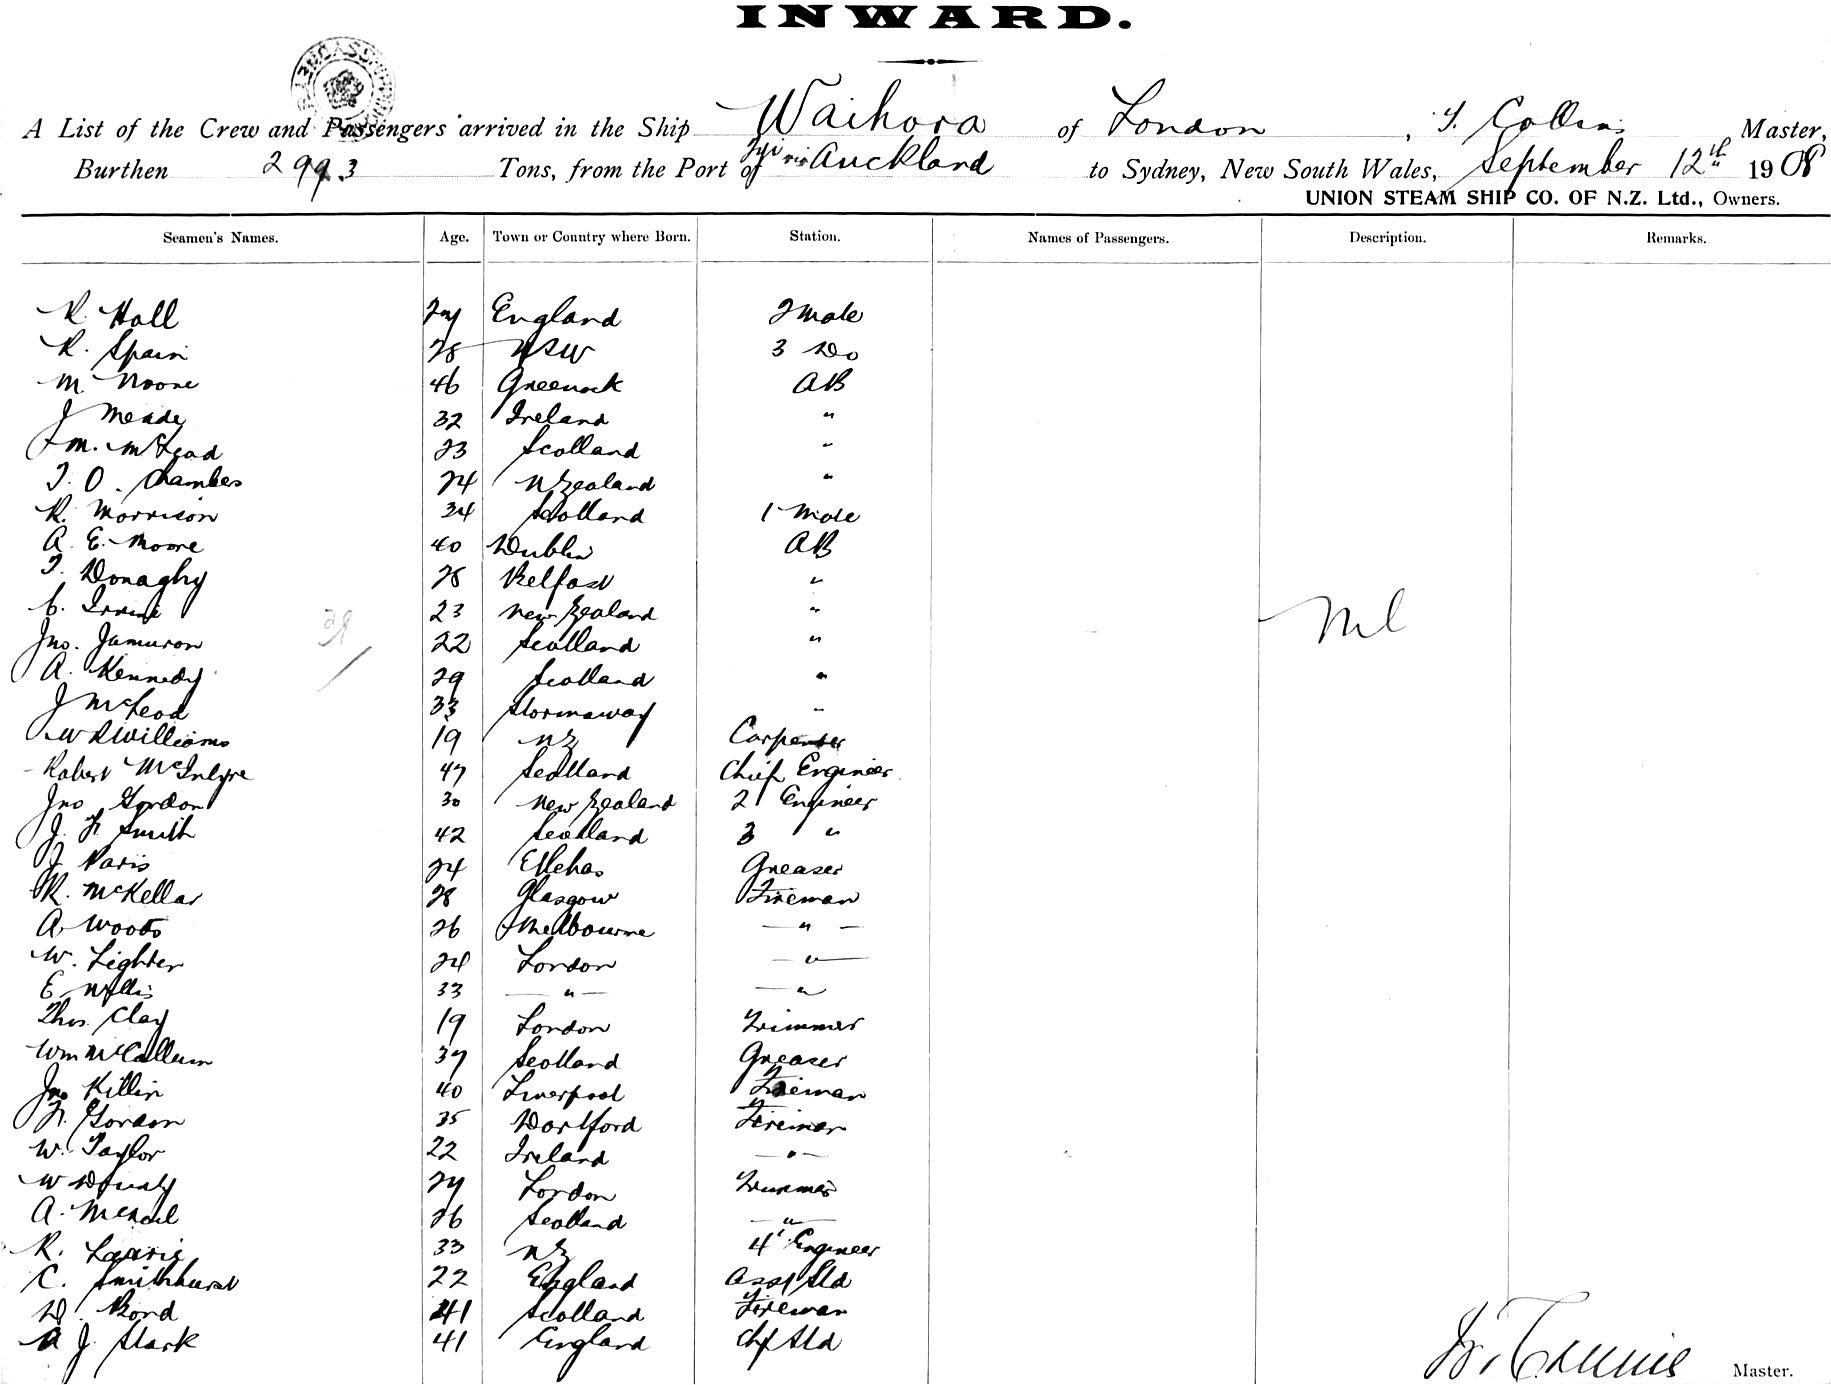 INWARD.
A List of the Crew and Passengers arrived in the Ship Waihora of London, Collins Master,
Burthen 2993 Tons, from the Port of Auckland to Sydney, New South Wales, September 12th 1908
UNION STEAM SHIP CO. OF N.Z. Ltd., Owners.
Seamen's Names. Age. Town or Country where Born. Station. Names of Passengers. Description. Remarks.
R. Hall England 2 Mate
R. Spain 28 NSW 3 Do
M Moore 46 Greenock AB
J Meade 32 Ireland "
M. McLeod 23 Scotland "
T. O. Chambers 24 N Zealand "
R. Morrison 34 Scotland 1 Mate
A. E. Moore 40 Dublin AB
T. Donaghy 28 Belfast "
C. Irvine 23 New Zealand "
Jno. 22 Scotland "
A. Kennedy 29 Scotland "
J McLeod 33 Stornaway "
W R Williams 19 NZ Carpenter
Robert McIntyre 47 Scotland Chief Engineer
Jno Gordon 30 New Zealand 2 Engineer
J. F. Smith 42 Scotland 3 "
J Paris 24 Greaser
R. McKellar 28 Glasgow Fireman
A. Woods 26 Melbourne "
W. Lighter 24 London "
E. Willis 33 " "
Thos. Clay 19 London Trimmer
Wm McCallum 37 Scotland Greaser
Jno Killin 40 Liverpool Fireman
F. Gordon 35 Dartford Fireman
W. Taylor 22 Ireland "
W London Trimmer
A. 26 Scotland "
R. Lawrie 33 NZ 4 Engineer
C. Smithhurst 22 England Asst Std
D. Bond 41 Scotland Fireman
A J. Stark 41 England Chf Std
Nil
Master.